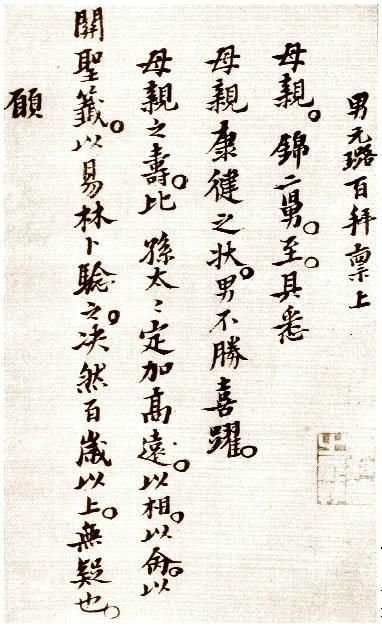 男元璐百拜稟上
母親。錦二舅。至。具悉
母親康徤之状。男不勝喜躍。
母親之壽。比孫太〻定加髙遠。以相。以命。以
關聖籤。以易林卜驗之。决然百歲以上。無疑也。
願